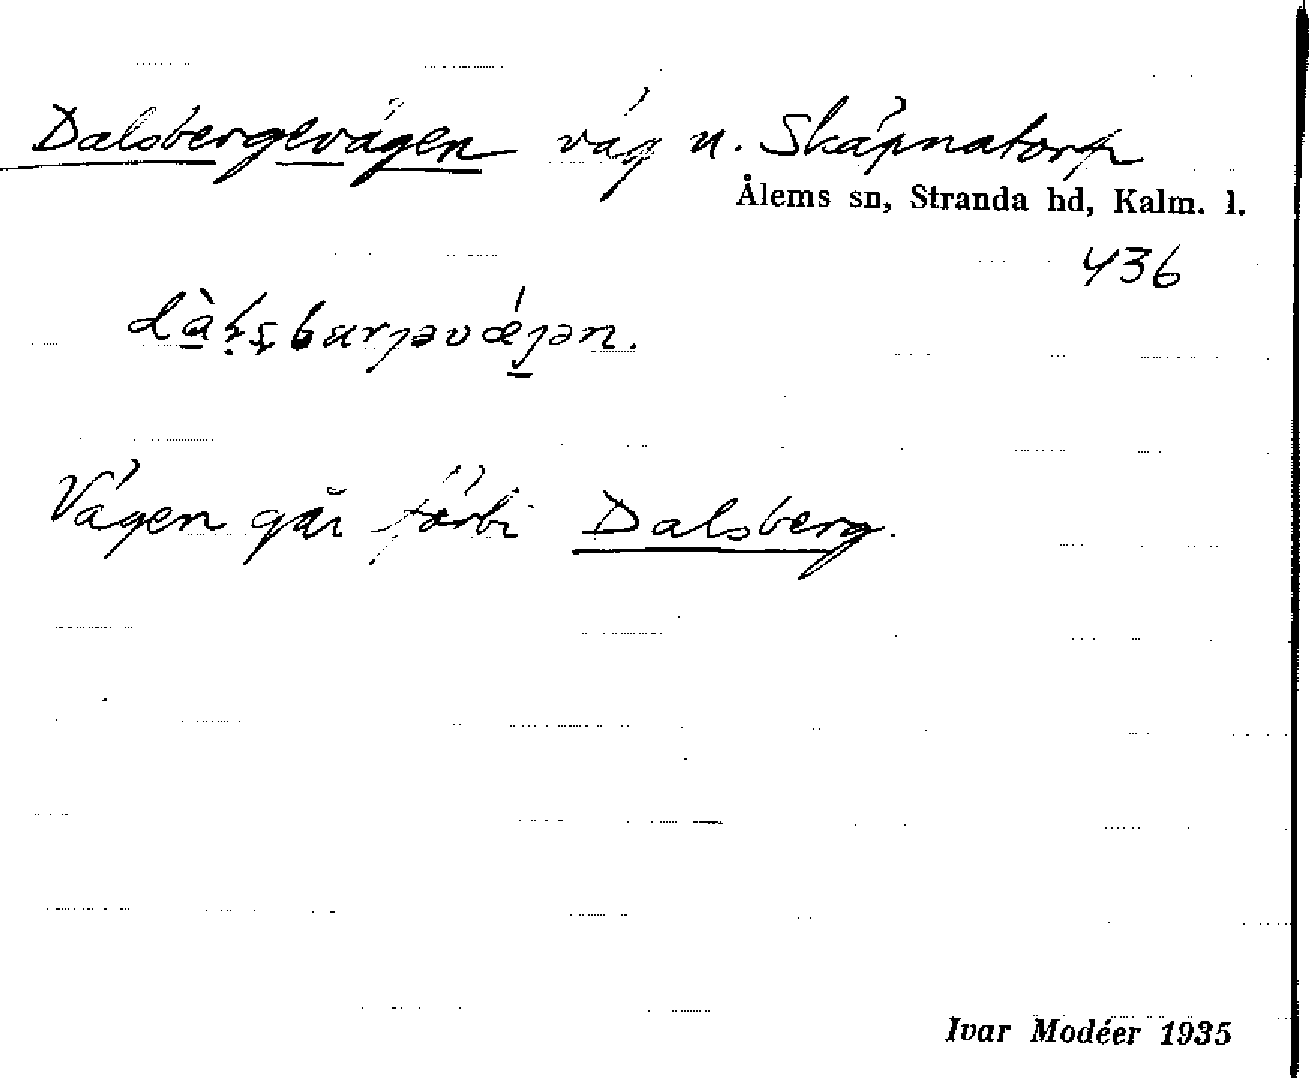 Dalsbergevägen väg n. Skäpnatorp
Ålems sn, Stranda hd, Kalm. l.
436
Vägen går förbi Dalsberg.
Ivar Modéer 1935